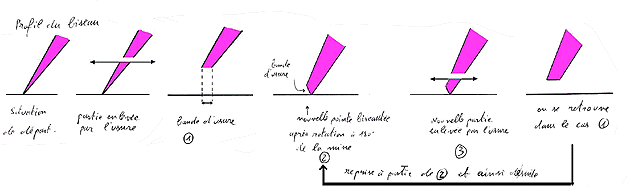 Profil du biseau
situation
de départ.
partie enlevée
par l'usure
bande d'usure
①
bande
d'usure
nouvelle pointe biseautée
après rotation à 180°
de la mine
②
Nouvelle partie
enlevée par l'usure
③
on se retrouve
dans le cas ①
reprise à partir de ② et ainsi desuite